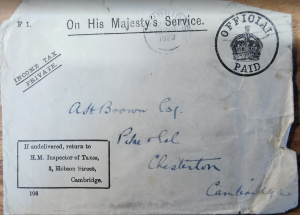 F 1.
On His Majesty's Service.
OFFICIAL
PAID
INCOME TAX
PRIVATE
A H Brown Esq.
Chesterton
Cambridge
If undelivered, return to
H.M. Inspector of Taxes,
3, Hobson Street,
Cambridge.
106